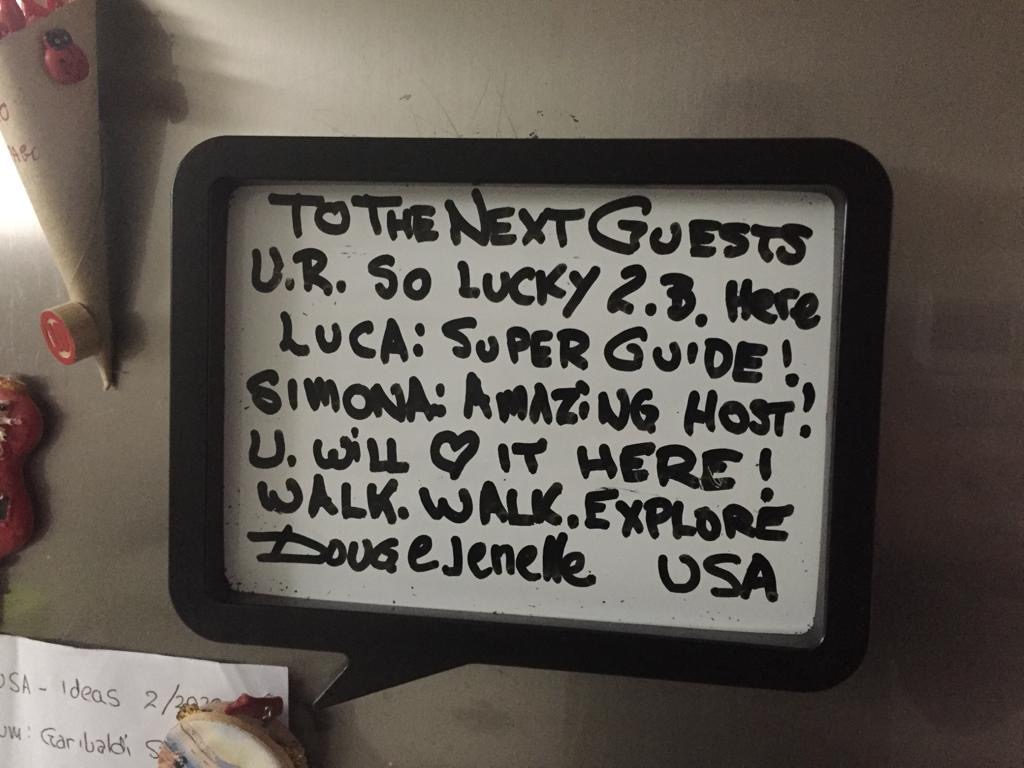 TO THE NEXT GUESTS
U.R. SO LUCKY 2.B. Here
LUCA: SUPER GUIDE!
SIMONA: AMAZiNG HOST!
U. WiLL ♡ IT HERE!
WALK. WALK. EXPLORE
DOUG e Jenelle USA
USA - Ideas 2/
Garibaldi